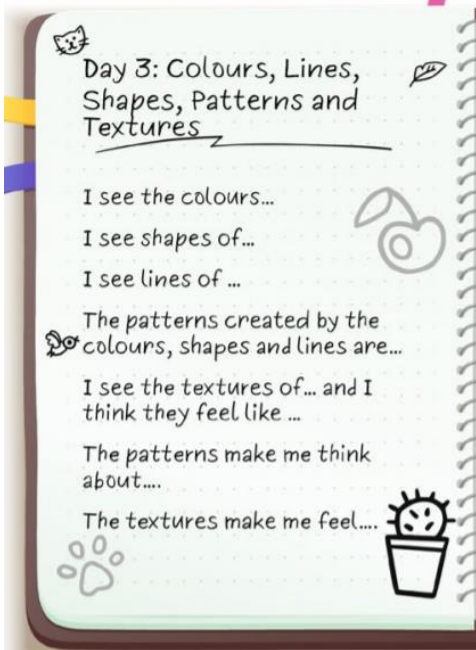 Day 3: Colours, Lines,
Shapes, Patterns and
Textures
I see the colours...
I see shapes of...
I see lines of ...
The patterns created by the
colours, shapes and lines are...
I see the textures of... and I
think they feel like ...
The patterns make me think
about....
The textures make me feel....